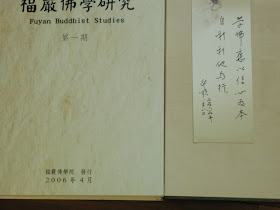 福嚴佛學研究
Fuyan Buddhist Studies
第一期
福嚴佛學院 發行
2006年4月
學佛應以信心為本
自利利他為從